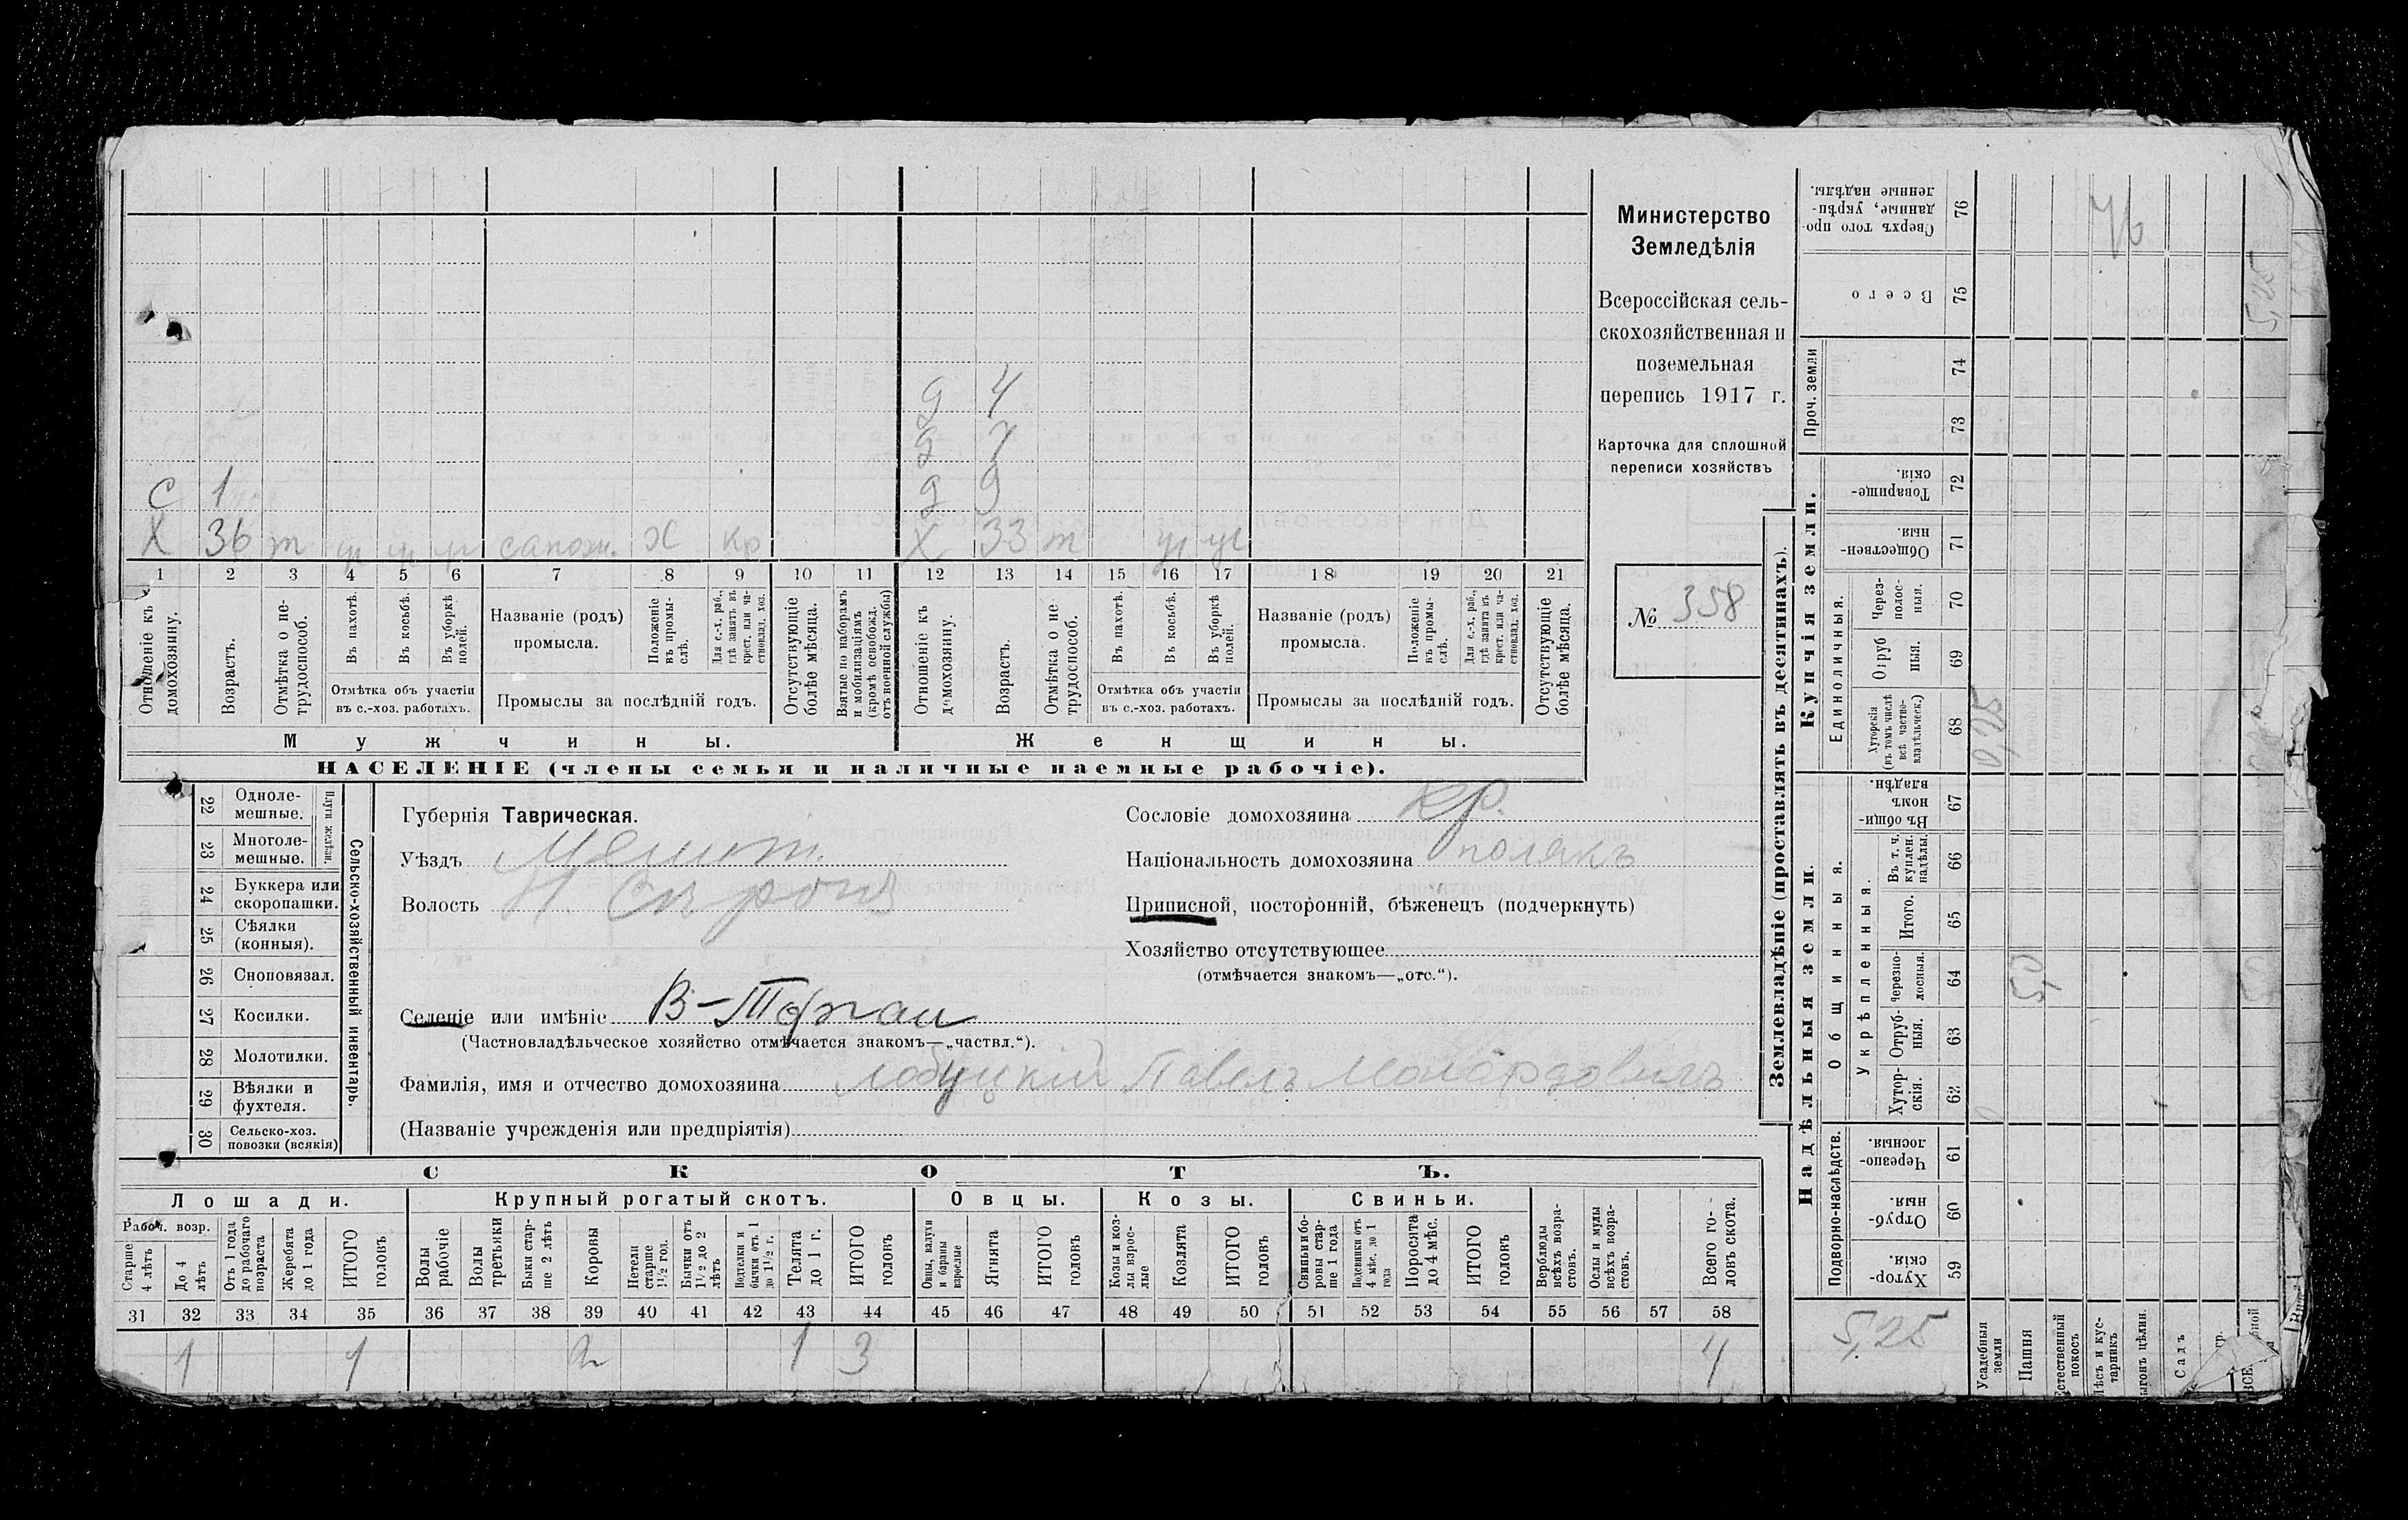 Министерство
Земледѣлія
Всероссійская сель-
скохозяйственная и
поземельная
перепись 1917 г.
Карточка для сплошной
переписи хозяйствъ
№ 358
д 4
д 7
С 1
д 9
Х 36 т сапожн. Х кр
Х 33 т
1 2 3 4 5 6 7 8 9 10 11 12 13 14 15 16 17 18 19 20 21
Отношеніе къ домохозяину.
Возрастъ.
Отмѣтка о не-
трудоспособ.
Въ пахотѣ.
Въ косьбѣ.
Въ уборкѣ
полей.
Отмѣтка объ участіи
въ с.-хоз. работахъ.
Названіе (родъ)
промысла.
Положеніе
въ промы-
слѣ.
Для с.-х. раб.,
гдѣ занятъ въ
крест. или ча-
стновлад. хоз.
Промыслы за послѣдній годъ.
Отсутствующіе
болѣе мѣсяца.
Взятые по наборамъ
и мобилизаціямъ
(кромѣ освобожд.
отъ военной службы)
Отношеніе къ
домохозяину.
Возрастъ.
Отмѣтка о не
трудоспособ.
Въ пахотѣ.
Въ косьбѣ.
Въ уборкѣ
полей.
Отмѣтка объ участіи
въ с.-хоз. работахъ.
Названіе (родъ)
промысла.
Положеніе
въ промы-
слѣ.
Для с.-х. раб.,
гдѣ занята въ
крест. или ча-
стновлад. хоз.
Промыслы за послѣдній годъ.
Отсутствующіе
болѣе мѣсяца.
Мужчины.
Женщины.
НАСЕЛЕНІЕ (члены семьи и наличные наемные рабочіе).
22 Одноле-
мешные.
23 Многоле-
мешные.
Плуги желѣзн.
24 Буккера или
скоропашки.
25 Сѣялки
(конныя).
26 Сноповязал.
27 Косилки.
28 Молотилки.
29 Вѣялки и
фухтеля.
30 Сельско-хоз.
повозки (всякія)
Сельско-хозяйственный инвентарь.
Губернія Таврическая.
Уѣздъ Мелит.
Волость
Селеніе или имѣніе
(Частновладѣльческое хозяйство отмѣчается знакомъ—„частвл.“).
Фамилія, имя и отчество домохозяина Лобуцкій Павелъ
(Названіе учрежденія или предпріятія)
Сословіе домохозяина кр.
Національность домохозяина полякъ
Приписной, посторонній, бѣженецъ (подчеркнуть)
Хозяйство отсутствующее
(отмѣчается знакомъ—„отс.“).
СКОТЪ.
Лошади.
Крупный рогатый скотъ.
Овцы.
Козы.
Свиньи.
Рабоч. возр.
Старше
4 лѣтъ
До 4
лѣтъ
Отъ 1 года
до рабочаго
возраста
Жеребята
до 1 года
ИТОГО
головъ
Волы
рабочіе
Волы
третьяки
Быки стар-
ше 2 лѣтъ
Коровы
Нетели
старше
1½ год.
Бычки отъ
1½ до 2
лѣтъ
Подтелки и
бычки отъ 1
до 1½ г.
Телята
до 1 г.
ИТОГО
головъ
Овцы, валухи
и бараны
взрослые
Ягнята
ИТОГО
головъ
Козы и коз-
лы взрос-
лые
Козлята
ИТОГО
головъ
Свиньи и бо-
ровы стар-
ше 1 года
Подсвинки отъ
4 мѣс. до 1
года
Поросята
до 4 мѣс.
ИТОГО
головъ
Верблюды
всѣхъ возра-
стовъ.
Ослы и мулы
всѣхъ возра-
стовъ.
Всего го-
ловъ скота.
31 32 33 34 35 36 37 38 39 40 41 42 43 44 45 46 47 48 49 50 51 52 53 54 55 56 57 58
1 1 2 1 3 4
Землевладѣніе (проставлять въ десятинахъ).
Надѣльныя земли.
Купчія земли.
Проч. земли
Подворно-наслѣдств.
Общинныя.
Укрѣпленныя.
Единоличныя.
Сверхъ того про-
данные, укрѣп-
ленные надѣлы. 76
Всего 75
74
73
Товарище-
скія. 72
Обществен-
ныя. 71
Через-
полос-
ныя. 70
Отруб
ныя. 69
Хуторскія
(въ томъ числѣ
всѣ частно-
владѣльческ.) 68
Въ общи-
номъ
владѣн. 67
Въ т. ч.
куплен.
надѣлы. 66
Итого. 65
Черезпо-
лосныя. 64
Отруб-
ныя. 63
Хутор-
скія. 62
Черезпо-
лосныя. 61
Отруб-
ныя. 60
Хутор-
скія. 59
5,25
0,25
5,0
5,25
Усадебныя
земли
Пашня
Естественный
покосъ
Лѣсъ и кус-
тарникъ
Садъ